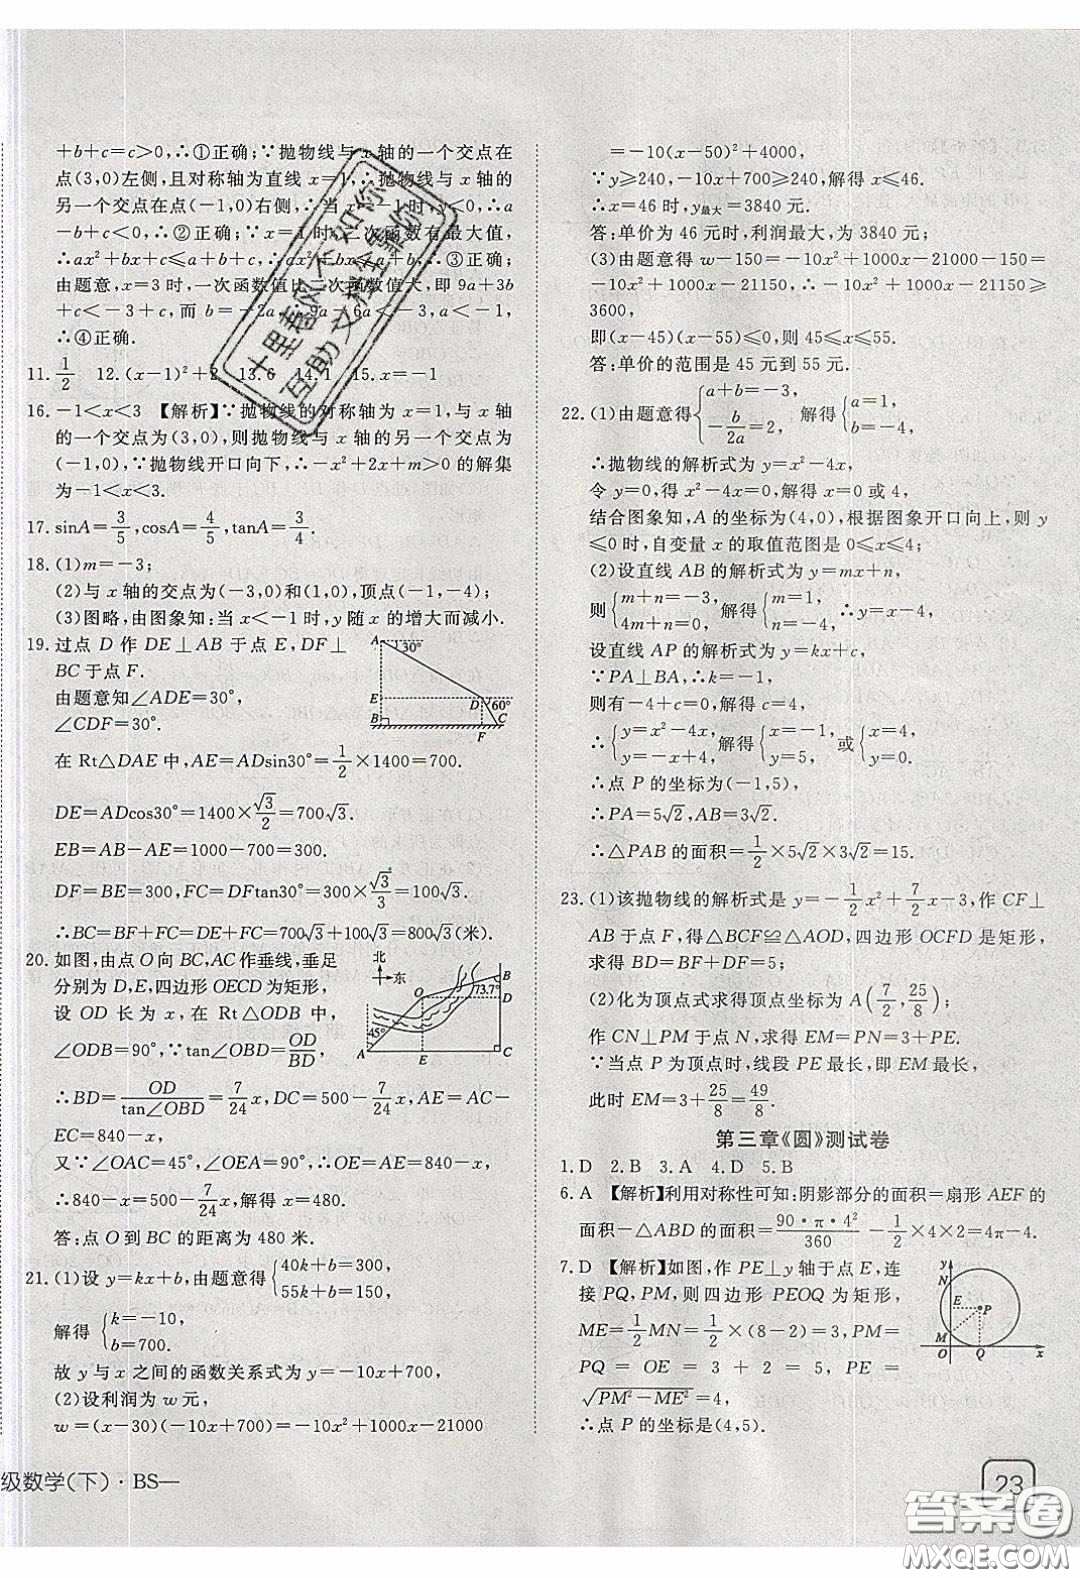 +b+c=c>0,∴①正确;∵抛物线与 x 轴的一个交点在
点(3,0)左侧,且对称轴为直线 x=1,∴抛物线与 x 轴的
另一个交点在点(-1,0)右侧,∴当 x=-1时,y<0,∴a
-b+c<0,∴②正确;∵x=1时,二次函数有最大值,
∴ax²+bx+c≤a+b+c,∴ax²+bx≤a+b,∴③正确;
由题意,x=3 时,一次函数值比二次函数值大,即 9a+3b
+c<-3+c,而 b=-2a,∴9a-6a<-3,∴a<-1,
∴④正确.
11. 1/2 12.(x-1)²+2 13.6 14.1 15.x=-1
16.-1<x<3 【解析】∵抛物线的对称轴为 x=1,与 x 轴
的一个交点为(3,0),则抛物线与 x 轴的另一个交点为
(-1,0),∵抛物线开口向下,∴-x²+2x+m>0 的解集
为-1<x<3.
17. sinA=3/5,cosA=4/5,tanA=3/4.
18.(1)m=-3;
(2)与 x 轴的交点为(-3,0)和(1,0),顶点(-1,-4);
(3)图略,由图象知:当 x<-1时,y 随 x 的增大而减小.
19.过点 D 作 DE⊥AB 于点 E,DF⊥
BC 于点 F.
由题意知∠ADE=30°,
∠CDF=30°.
A 30° E D 60° B F C
在 Rt△DAE 中,AE=ADsin30°=1/2×1400=700.
DE=ADcos30°=1400×√3/2=700√3.
EB=AB-AE=1000-700=300.
DF=BE=300,FC=DFtan30°=300×√3/3=100√3.
∴BC=BF+FC=DE+FC=700√3+100√3=800√3(米).
20.如图,由点 O 向 BC,AC 作垂线,垂足
分别为 D,E,四边形 OECD 为矩形,
设 OD 长为 x,在 Rt△ODB 中,
∠ODB=90°,∵tan∠OBD=OD/BD,
北 东 O B 73.7° D 45° A E C
∴BD=OD/tan∠OBD=7/24x,DC=500-7/24x,AE=AC-
EC=840-x,
又∵∠OAC=45°,∠OEA=90°,∴OE=AE=840-x,
∴840-x=500-7/24x,解得 x=480.
答:点 O 到 BC 的距离为 480 米.
21.(1)设 y=kx+b,由题意得{40k+b=300,
55k+b=150,
解得{k=-10,
b=700.
故 y 与 x 之间的函数关系式为 y=-10x+700;
(2)设利润为 w 元,
w=(x-30)(-10x+700)=-10x²+1000x-21000
=-10(x-50)²+4000,
∵y≥240,-10x+700≥240,解得 x≤46.
∴x=46 时,y最大=3840 元.
答:单价为 46 元时,利润最大,为 3840 元.
(3)由题意得 w-150=-10x²+1000x-21000-150
=-10x²+1000x-21150,∴-10x²+1000x-21150≥
3600,
即(x-45)(x-55)≤0,解得 45≤x≤55.
答:单价的范围是 45 元到 55 元.
22.(1)由题意得{a+b=-3,
-b/2a=2, 解得{a=1,
b=-4,
∴抛物线的解析式为 y=x²-4x,
令 y=0,得 x²-4x=0,解得 x=0或 4,
结合图象知,A 的坐标为(4,0),根据图象开口向上,则 y
≤0时,自变量 x 的取值范围是 0≤x≤4;
(2)设直线 AB 的解析式为 y=mx+n,
则{m+n=-3,
4m+n=0, 解得{m=1,
n=-4, ∴y=x-4,
设直线 AP 的解析式为 y=kx+c,
∵PA⊥BA,∴k=-1,
则有-4+c=0,解得 c=4,
∴{y=x²-4x,
y=-x+4, 解得{x=-1,
y=5, 或{x=4,
y=0.
∴点 P 的坐标为(-1,5),
∴PA=5√2,AB=3√2,
∴△PAB 的面积=1/2×5√2×3√2=15.
23.(1)该抛物线的解析式是 y=-1/2x²+7/2x-3,作 CF⊥
AB 于点 F,得△BCF≌△AOD,四边形 OCFD 是矩形,
求得 BD=BF+DF=5;
(2)化为顶点式求得顶点坐标为 A(7/2,25/8);
作 CN⊥PM 于点 N,求得 EM=PN=3+PE.
∵当点 P 为顶点时,线段 PE 最长,即 EM 最长,
此时 EM=3+25/8=49/8.
第三章《圆》测试卷
1.D 2.B 3.A 4.D 5.B
6.A 【解析】利用对称性可知:阴影部分的面积=扇形 AEF 的
面积-△ABD 的面积=90·π·4²/360-1/2×4×2=4π-4.
7.D 【解析】如图,作 PE⊥y 轴于点 E,连
接 PQ,PM,则四边形 PEOQ 为矩形,
ME=1/2MN=1/2×(8-2)=3,PM=
PQ=OE=3+2=5,PE=
√PM²-ME²=4,
∴点 P 的坐标是(4,5).
y N E P M O Q x
级数学(下)·BS—
23
十里春风不如你
互助文档全靠你
答案圈
MXQE.COM